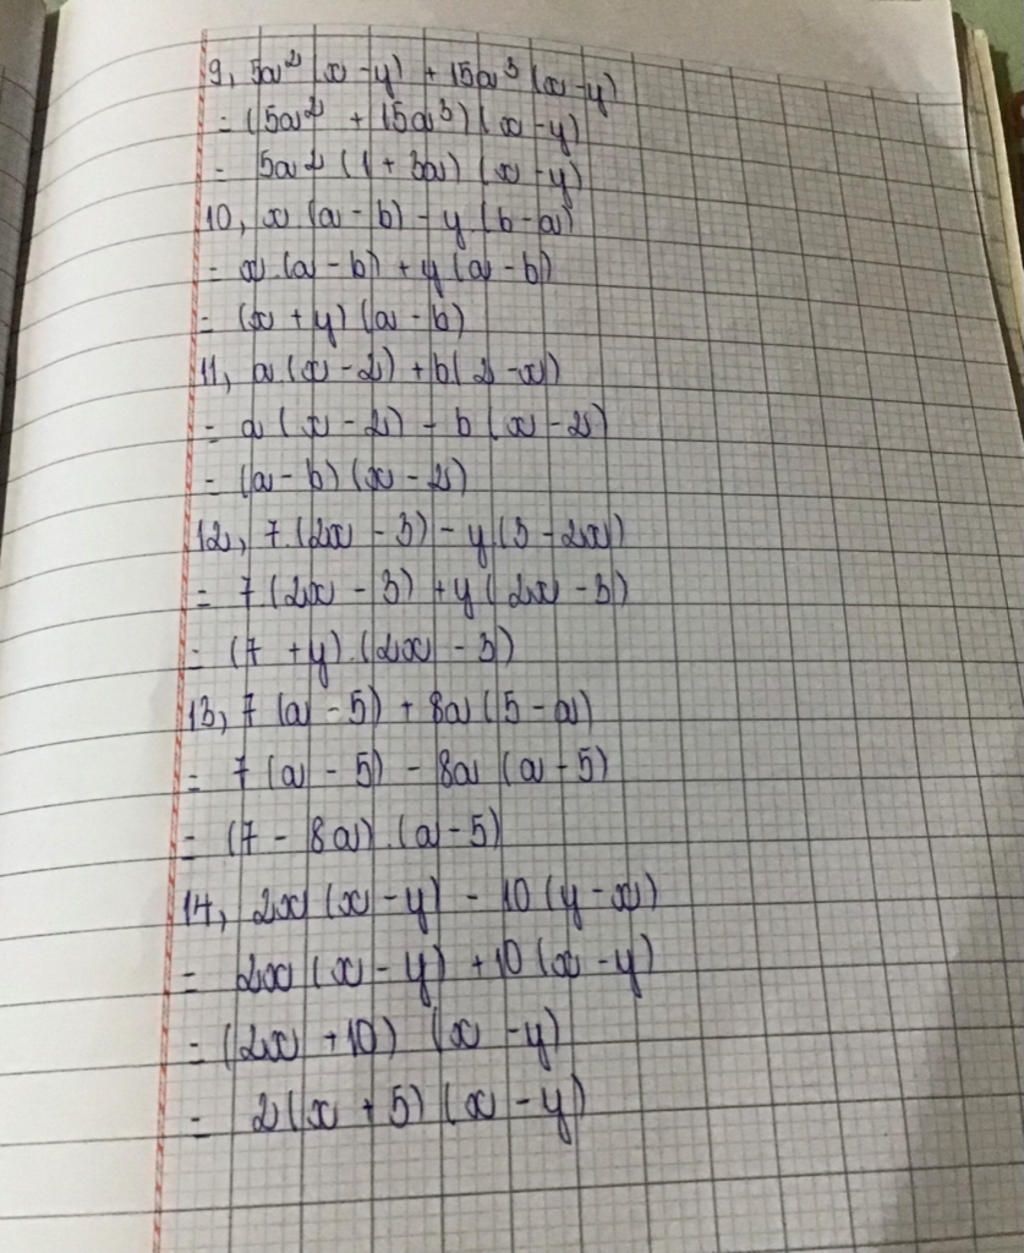 9, 5a² (x - y) + 15a³ (x - y)
= (5a² + 15a³) (x - y)
= 5a² (1 + 3a) (x - y)
10, x (a - b) - y (b - a)
= x (a - b) + y (a - b)
= (x + y) (a - b)
11, a (x - 2) + b (2 - x)
= a (x - 2) - b (x - 2)
= (a - b) (x - 2)
12, 7 (2x - 3) - y (3 - 2x)
= 7 (2x - 3) + y (2x - 3)
= (7 + y) . (2x - 3)
13, 7 (a - 5) + 8a (5 - a)
= 7 (a - 5) - 8a (a - 5)
= (7 - 8a) . (a - 5)
14, 2x (x - y) - 10 (y - x)
= 2x (x - y) + 10 (x - y)
= (2x + 10) (x - y)
= 2 (x + 5) (x - y)